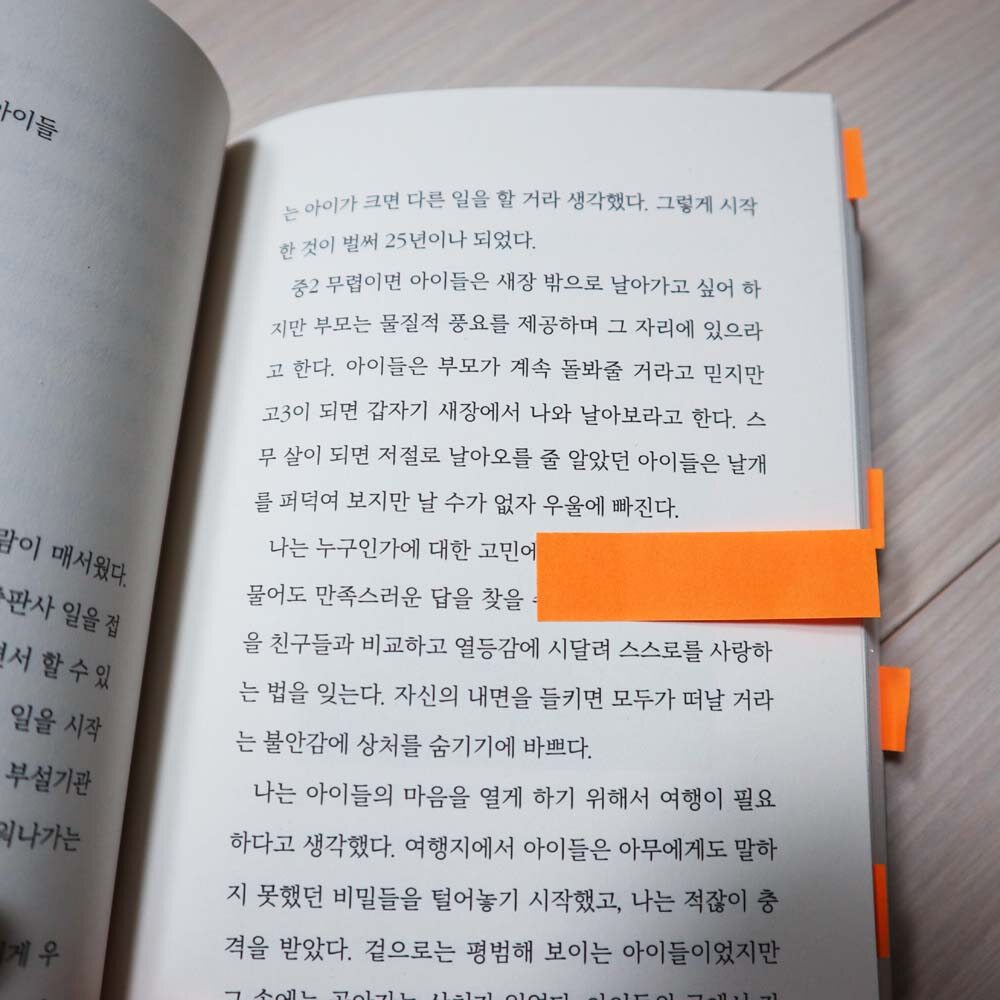 아이들
람이 매서웠다.
출판사 일을 접
면서 할 수 있
일을 시작
부설기관
나가는
게 우
는 아이가 크면 다른 일을 할 거라 생각했다. 그렇게 시작
한 것이 벌써 25년이나 되었다.
중2 무렵이면 아이들은 새장 밖으로 날아가고 싶어 하
지만 부모는 물질적 풍요를 제공하며 그 자리에 있으라
고 한다. 아이들은 부모가 계속 돌봐줄 거라고 믿지만
고3이 되면 갑자기 새장에서 나와 날아보라고 한다. 스
무 살이 되면 저절로 날아오를 줄 알았던 아이들은 날개
를 퍼덕여 보지만 날 수가 없자 우울에 빠진다.
나는 누구인가에 대한 고민에
물어도 만족스러운 답을 찾을
을 친구들과 비교하고 열등감에 시달려 스스로를 사랑하
는 법을 잊는다. 자신의 내면을 들키면 모두가 떠날 거라
는 불안감에 상처를 숨기기에 바쁘다.
나는 아이들의 마음을 열게 하기 위해서 여행이 필요
하다고 생각했다. 여행지에서 아이들은 아무에게도 말하
지 못했던 비밀들을 털어놓기 시작했고, 나는 적잖이 충
격을 받았다. 겉으로는 평범해 보이는 아이들이었지만